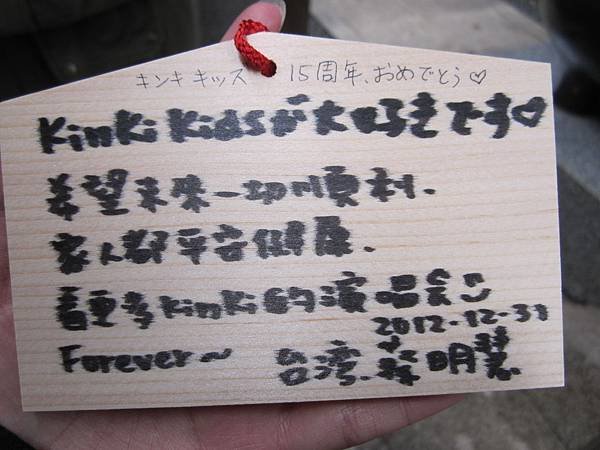 キンキキッス 15周年、おめでとう♡
KinKi Kidsが大好きです♡
希望未來一切順利.
家人都平安健康.
看更多KinKi的演唱会
2012-12-31
Forever~ 台灣.蔡明慧